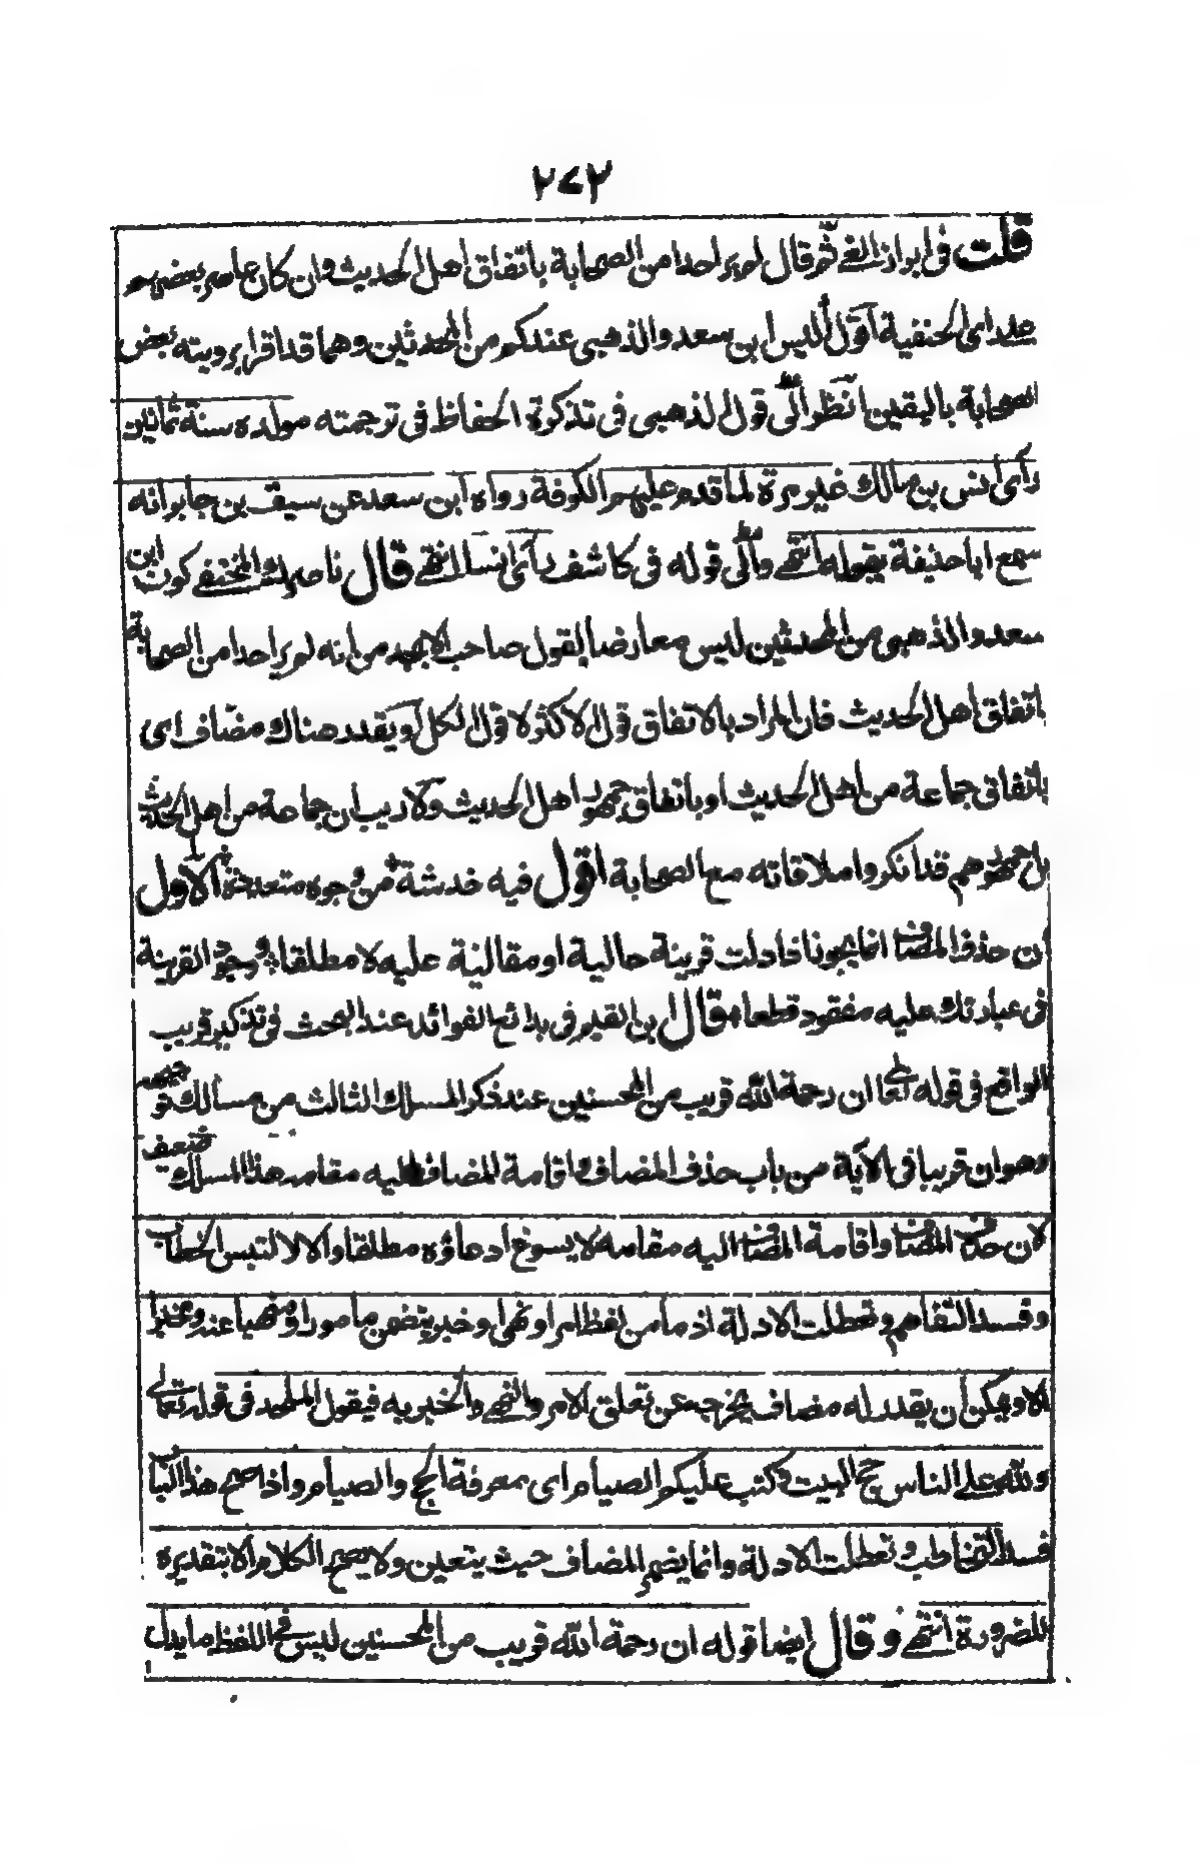 ٢٧٢
قلت فى ابراز الغى ثم قال لم ير احدا من الصحابة باتفاق اهل الحديث وان كان عاصر بعضهم
على راى الحنفية اقول أليس ابن سعد والذهبى عندكم من المحدثين وهما قد اقرا برويته بعض
الصحابة باليقين انظر الى قول الذهبى فى تذكرة الحفاظ فى ترجمته مولده سنة ثمانين
رأى انس بن مالك غير مرة لما قدم عليهم الكوفة رواه ابن سعد عن سيف بن جابر انه
سمع ابا حنيفة يقوله انتهى والى قوله فى كاشف رأى انسا انتهى قال ناصرك المختفى كون ابن
سعد والذهبى من المحدثين ليس معارضا لقول صاحب الابجد من انه لم ير احدا من الصحابة
باتفاق اهل الحديث فان المراد بالاتفاق قول الاكثر لا قول الكل او يقدر هناك مضاف اى
باتفاق جماعة من اهل الحديث او باتفاق جمهور اهل الحديث ولا ريب ان جماعة من اهل الحديث
بل جمهورهم قد انكروا ملاقاته مع الصحابة اقول فيه خدشة من وجوه متعددة الاول
أن حذف المضاف انما يجوز اذا دلت قرينة حالية او مقالية عليه لا مطلقا ووجود القرينة
فى عبارتك عليه مفقود قطعا قال ابن القيم فى بدائع الفوائد عند البحث فى تذكير قريب
الواقع فى قوله تعالى ان رحمة الله قريب من المحسنين عند ذكر المسلك الثالث من مسالك توجيهه
وهو ان قريبا فى الآية من باب حذف المضاف واقامة المضاف اليه مقامه هذا المسلك ضعيف
لان حذف المضاف واقامة المضاف اليه مقامه لا يسوغ ادعاؤه مطلقا والا لالتبس الخطاب
وفسد التفاهم وتعطلت الادلة اذ ما من لفظ امر او نهى او خبر يتضمن مامورا او منهيا عنه ومخبرا
الا ويمكن أن يقدر له مضاف يخرجه عن تعلق الامر والنهى والخبر به فيقول الملحد فى قوله تعالى
ولله على الناس حج البيت وكتب عليكم الصيام اى معرفة الحج والصيام واذا صح هذا الباب
فسد التخاطب وتعطلت الادلة وانما يضمر المضاف حيث يتعين ولا يصح الكلام الا بتقديره
للضرورة انتهى وقال ايضا قوله ان رحمة الله قريب من المحسنين ليس فى اللفظ ما يدل